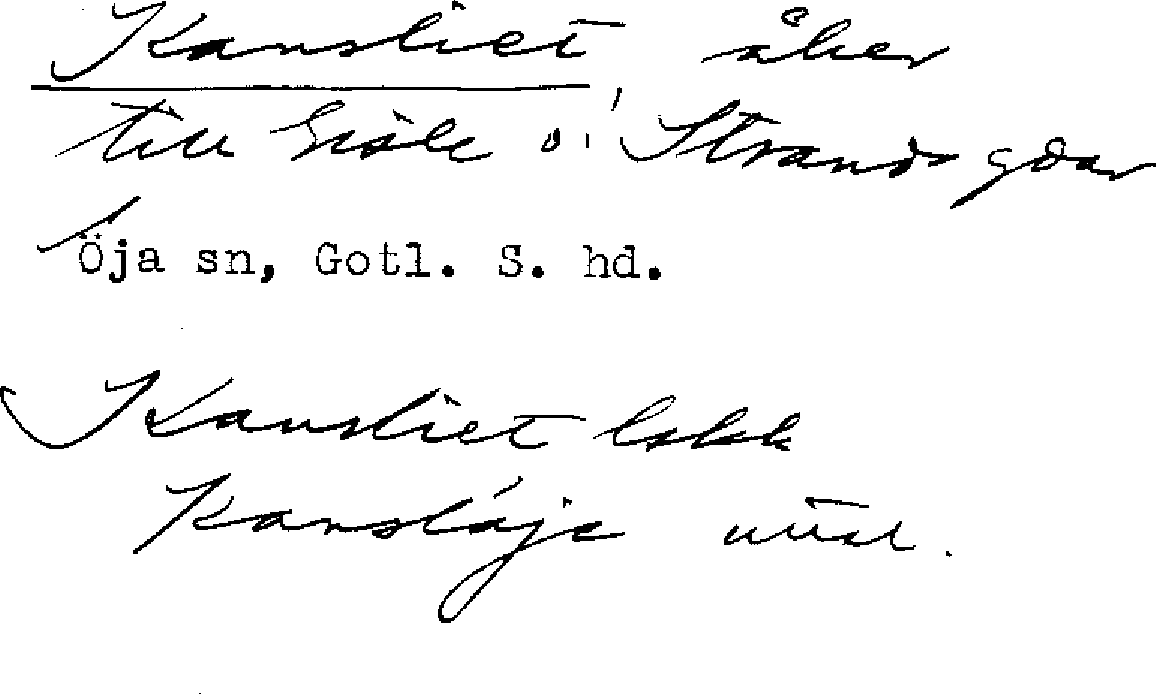 Kansliet åker
till Gisle o. Strands gdar
Öja sn, Gotl. S. hd.
Kansliet
Kansláje uttal.